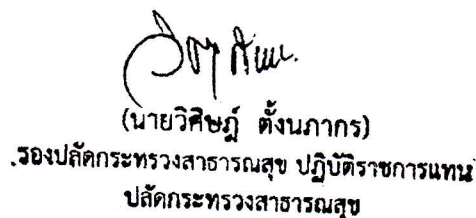 (นายวิศิษฎ์ ตั้งนภากร)
รองปลัดกระทรวงสาธารณสุข ปฏิบัติราชการแทน
ปลัดกระทรวงสาธารณสุข